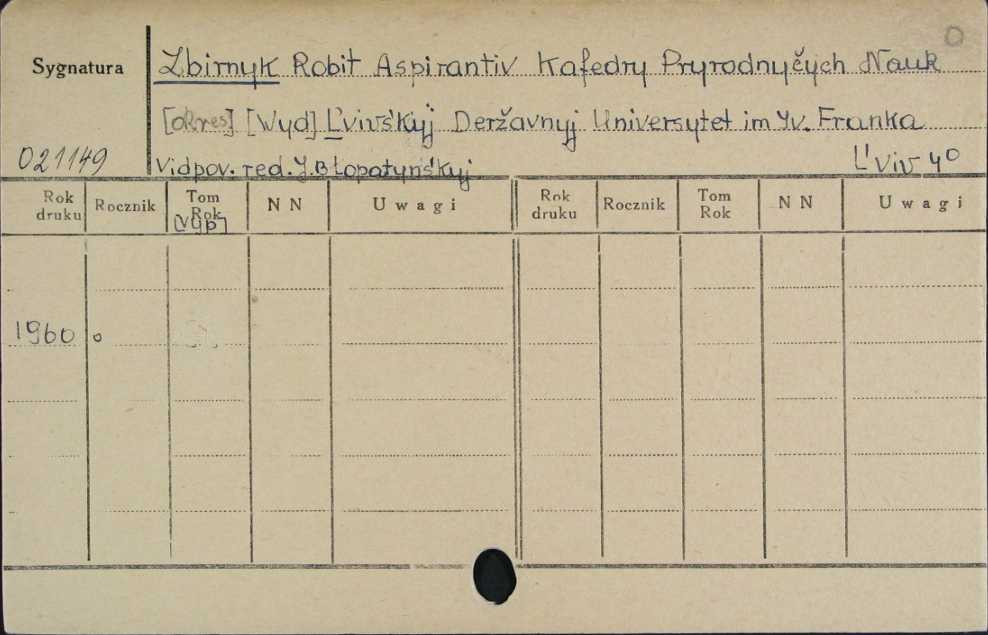 0
Sygnatura
Zbirnyk Robit Aspirantiv Kafedry Pryrodnyčych Nauk
[okres] [Wyd] L'vivs'kyj Deržavnyj Universytet im Iv. Franka
021149
Vidpov. red. J.B Łopatyns'kyj. L'viv 4°
Rok druku Rocznik Tom Rok [Vyp] NN Uwagi Rok druku Rocznik Tom Rok NN Uwagi
1960 o